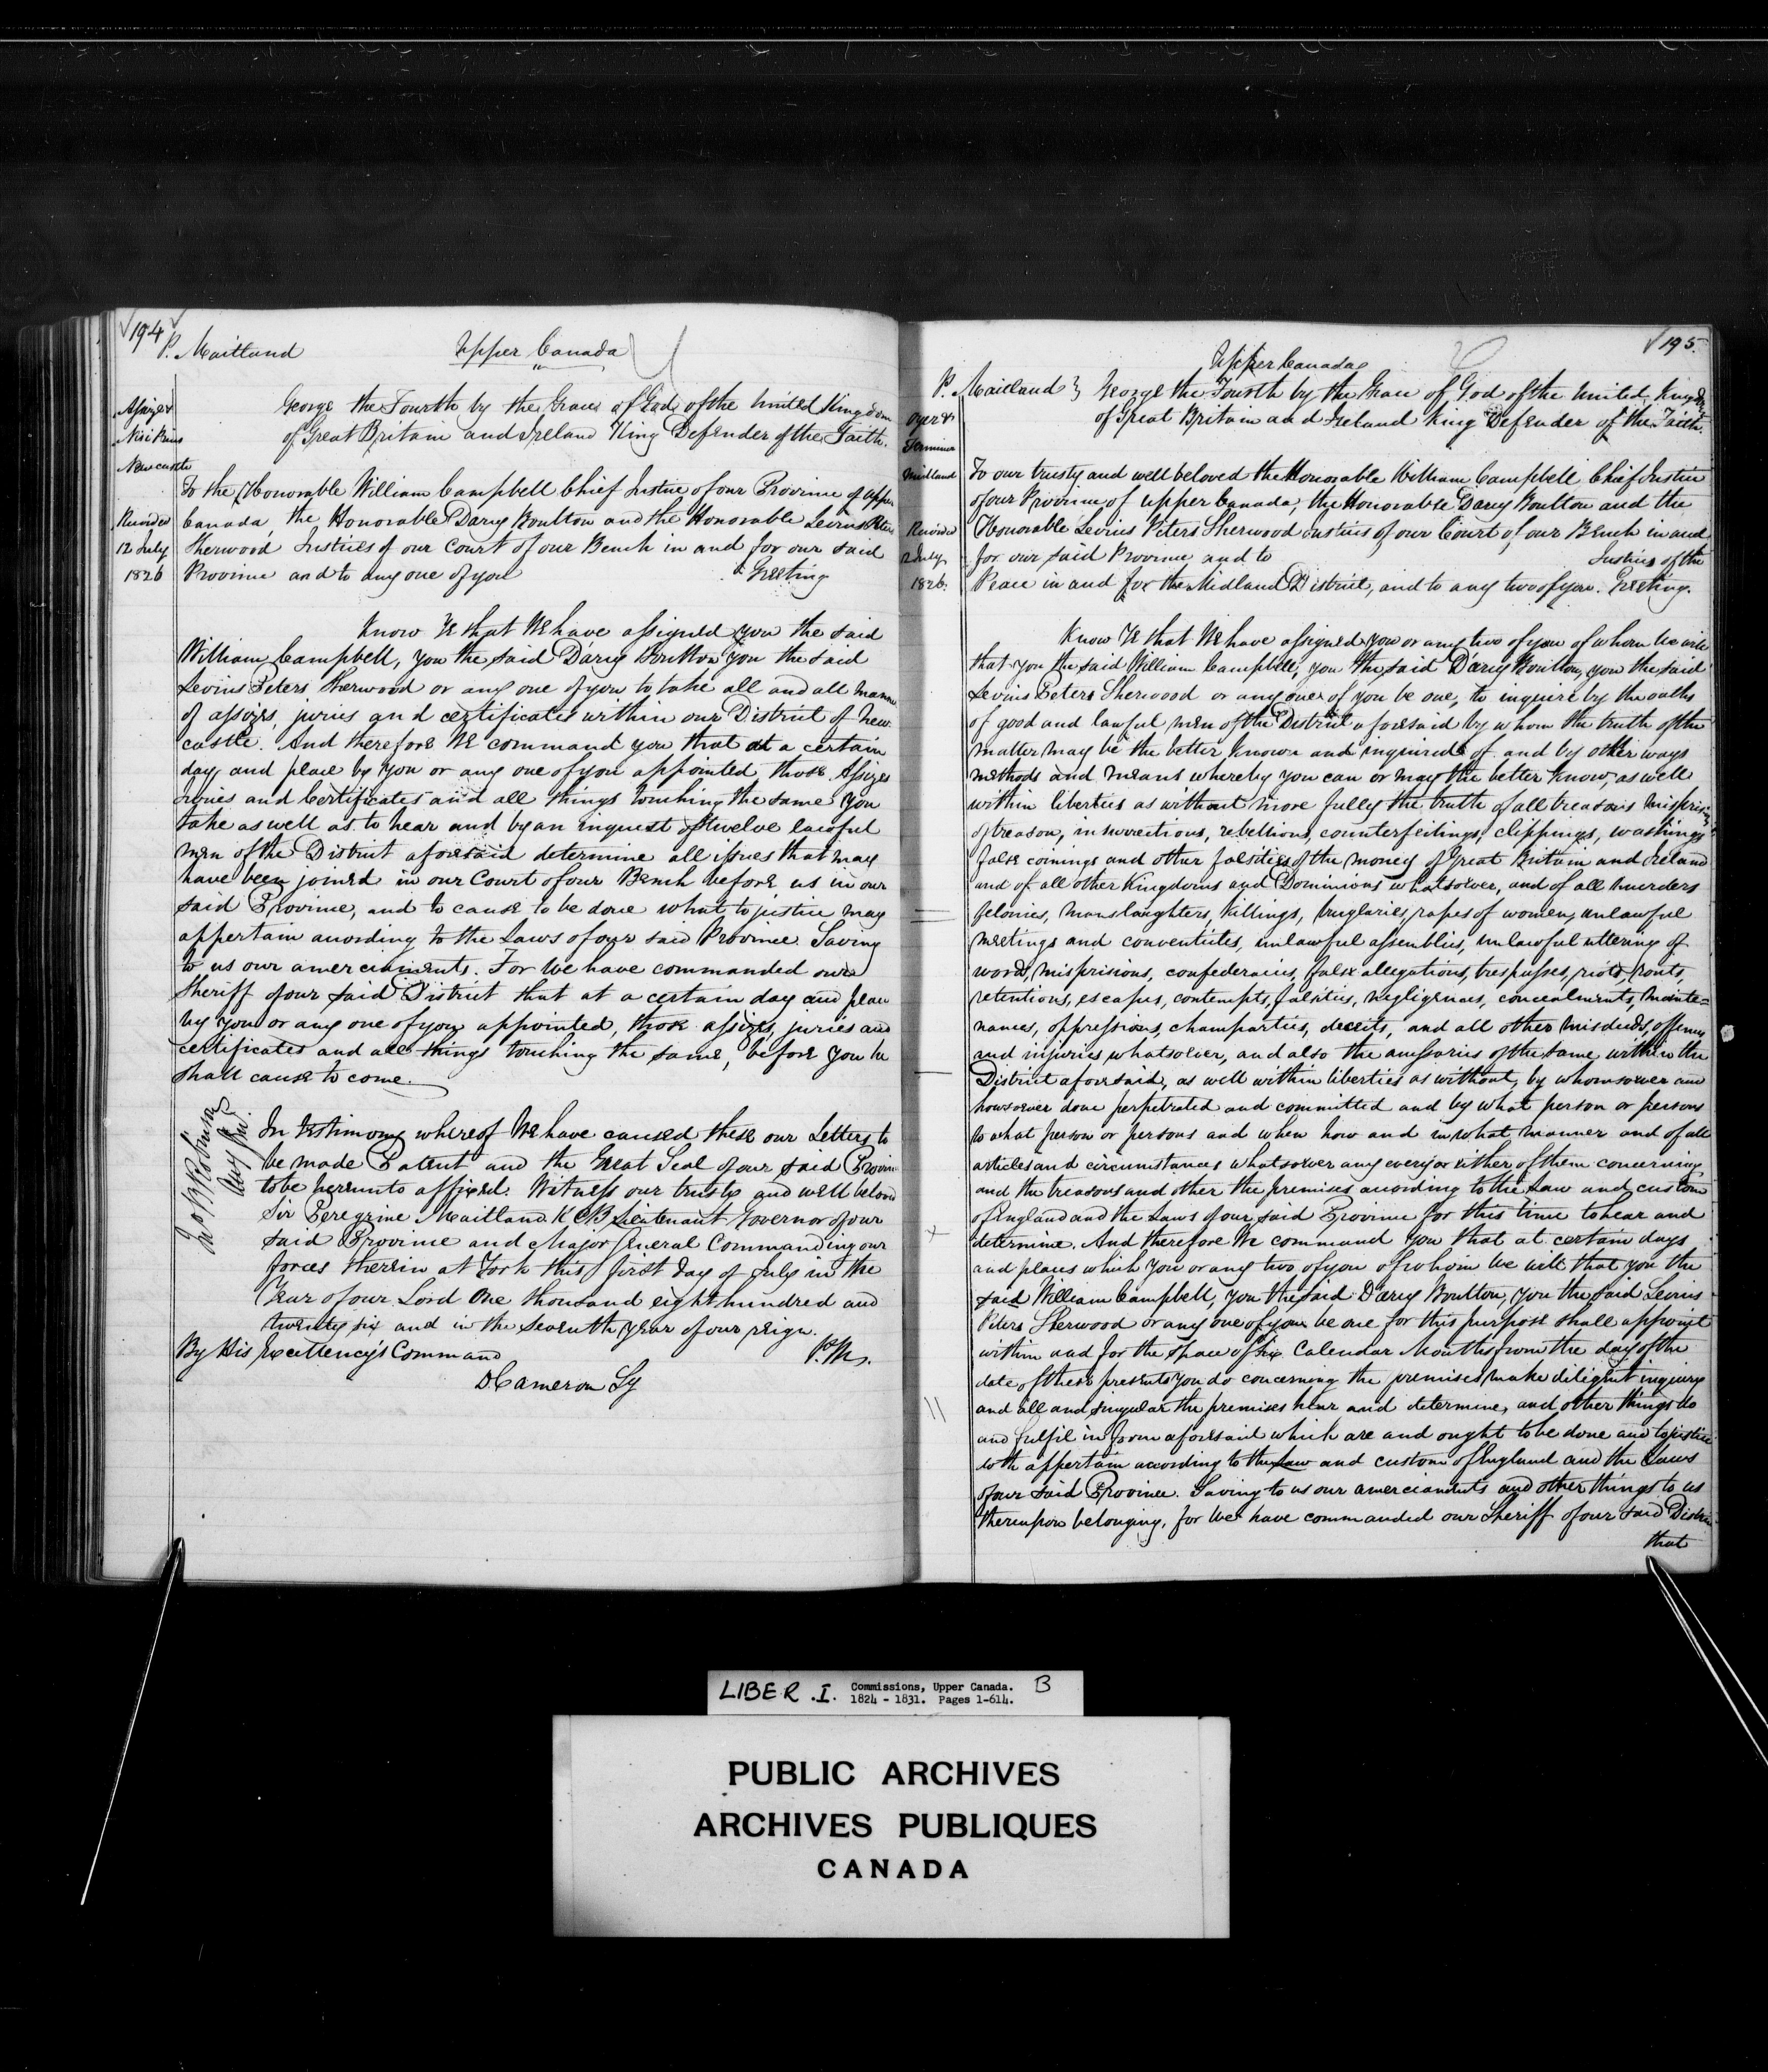 194
P. Maitland
Upper Canada
Assizes &
Nisi Prius
Newcastle
Recorded
12 July
1826
George the Fourth by the Grace of God of the United Kingdom
of Great Britain and Ireland King Defender of the Faith.
To the Honorable William Campbell Chief Justice of our Province of Upper
Canada, the Honorable Darcy Boulton and the Honorable Levius Peters
Sherwood Justices of our Court of our Bench in and for our said
Province and to any one of you Greeting
Know Ye that We have assigned you the said
William Campbell, you the said D'arcy Boulton you the said
Levius Peters Sherwood or any one of you to take all and all manner
of assizes, juries and certificates within our District of New
castle. And therefore We command you that at a certain
day and place by you or any one of you appointed those Assizes
Juries and Certificates and all things touching the same you
take as well as to hear and by an inquest of twelve lawful
men of the District aforesaid determine all issues that may
have been joined in our Court of our Bench before us in our
said Province, and to cause to be done what to justice may
appertain according to the Laws of our said Province Saving
to us our amerciaments. For We have commanded our
Sheriff of our said District that at a certain day and place
by you or any one of you appointed, those assizes, juries and
certificates and all things touching the same, before you he
shall cause to come.
Jno B Robinson
Atty Gen.
In testimony whereof We have caused these our Letters to
be made Patent and the Great Seal of our said Province
to be hereunto affixed. Witness our trusty and well beloved
Sir Peregrine Maitland K C B Lieutenant Governor of our
said Province and Major General Commanding our
forces therein at York this first day of July in the
Year of our Lord One thousand eight hundred and
twenty six and in the seventh year of our reign.
By His Excellency's Command P. M.
D Cameron Sy
195.
Upper Canada
P. Maitland } George the Fourth by the Grace of God of the United Kingdom
of Great Britain and Ireland King Defender of the Faith.
Oyer &
Terminer
Midland
Recorded
12 July
1826.
To our trusty and well beloved the Honorable William Campbell Chief Justice
of our Province of Upper Canada, the Honorable Darcy Boulton and the
Honorable Levius Peters Sherwood Justices of our Court of our Bench in and
for our said Province and to Justices of the
Peace in and for the Midland District, and to any two of you. Greeting.
Know Ye that We have assigned you or any two of you of whom We will
that you the said William Campbell, you the said D'arcy Boulton, you the said
Levius Peters Sherwood or any one of you be one, to inquire by the oaths
of good and lawful men of the District aforesaid by whom the truth of the
matter may be the better known and inquired of and by other ways
methods and means whereby you can or may the better know, as well
within liberties as without more fully the truth of all treasons misprisions
of treason, insurrections, rebellions, counterfeitings, clippings, washings
false coinings and other falsities of the money of Great Britain and Ireland
and of all other Kingdoms and Dominions whatsoever, and of all murders
felonies, manslaughters, killings, burglaries, rapes of women, unlawful
meetings and conventicles, unlawful assemblies, unlawful uttering of
words, misprisions, confederacies, false allegations, trespasses, riots, routs,
retentions, escapes, contempts, falsities, negligences, concealments, mainte=
nances, oppressions, champarties, deceits, and all other misdeeds, offences
and injuries whatsoever, and also the accessaries of the same within the
District aforesaid, as well within liberties as without, by whomsoever and
howsoever done perpetrated and committed and by what person or persons
to what person or persons and when how and in what manner and of all
articles and circumstances whatsoever any every or either of them concerning
and the treasons and other the premises according to the Law and custom
of England and the Laws of our said Province for this time to hear and
determine. And therefore We command you that at certain days
and places which you or any two of you of whom We will that you the
said William Campbell, you the said D'arcy Boulton, you the said Levius
Peters Sherwood or any one of you be one for this purpose shall appoint
within and for the space of six Calendar Months from the day of the
date of these presents you do concerning the premises make diligent inquiry
and all and singular the premises hear and determine, and other things do
and fulfil in form aforesaid which are and ought to be done and to justice
doth appertain according to the Law and custom of England and the Laws
of our said Province. Saving to us our amerciaments and other things to us
thereupon belonging, for We have commanded our Sheriff of our said District
that
LIBER .I. Commissions, Upper Canada. B
1824 - 1831. Pages 1-614.
PUBLIC ARCHIVES
ARCHIVES PUBLIQUES
CANADA